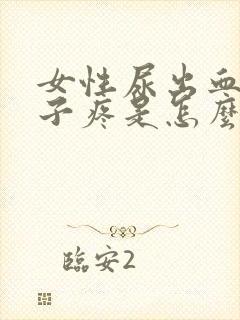 女性尿出血
子疼是怎麼
臨安2